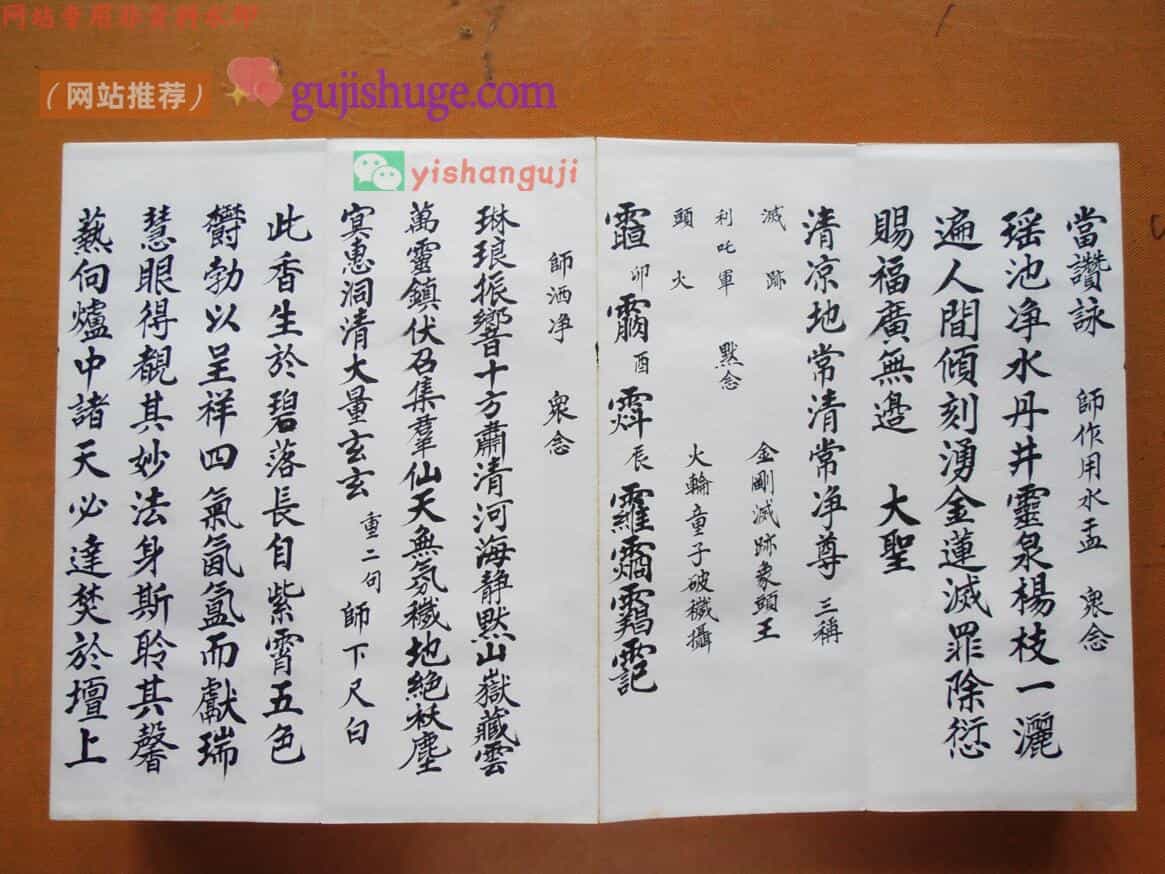 网站专用非资料水印
（网站推荐）
gujishuge.com
yishanguji
當讚詠 師作用水盂 衆念
瑶池净水丹井靈泉楊枝一灑
遍人間傾刻湧金蓮滅罪除愆
賜福廣無邊 大聖
清凉地常清常净尊 三稱
滅跡 金剛滅跡象頭王
利吒軍 默念
頭火 火輪童子破穢攝
卯 酉 辰
師洒净 衆念
琳琅振響十方肅清河海静默山嶽藏雲
萬靈鎮伏召集羣仙天無氛穢地絶袄塵
冥惠洞清大量玄玄 重二句 師下尺白
此香生於碧落長自紫霄五色
欝勃以呈祥四氣氤氳而獻瑞
慧眼得觀其妙法身斯聆其馨
爇向爐中諸天必達焚於壇上